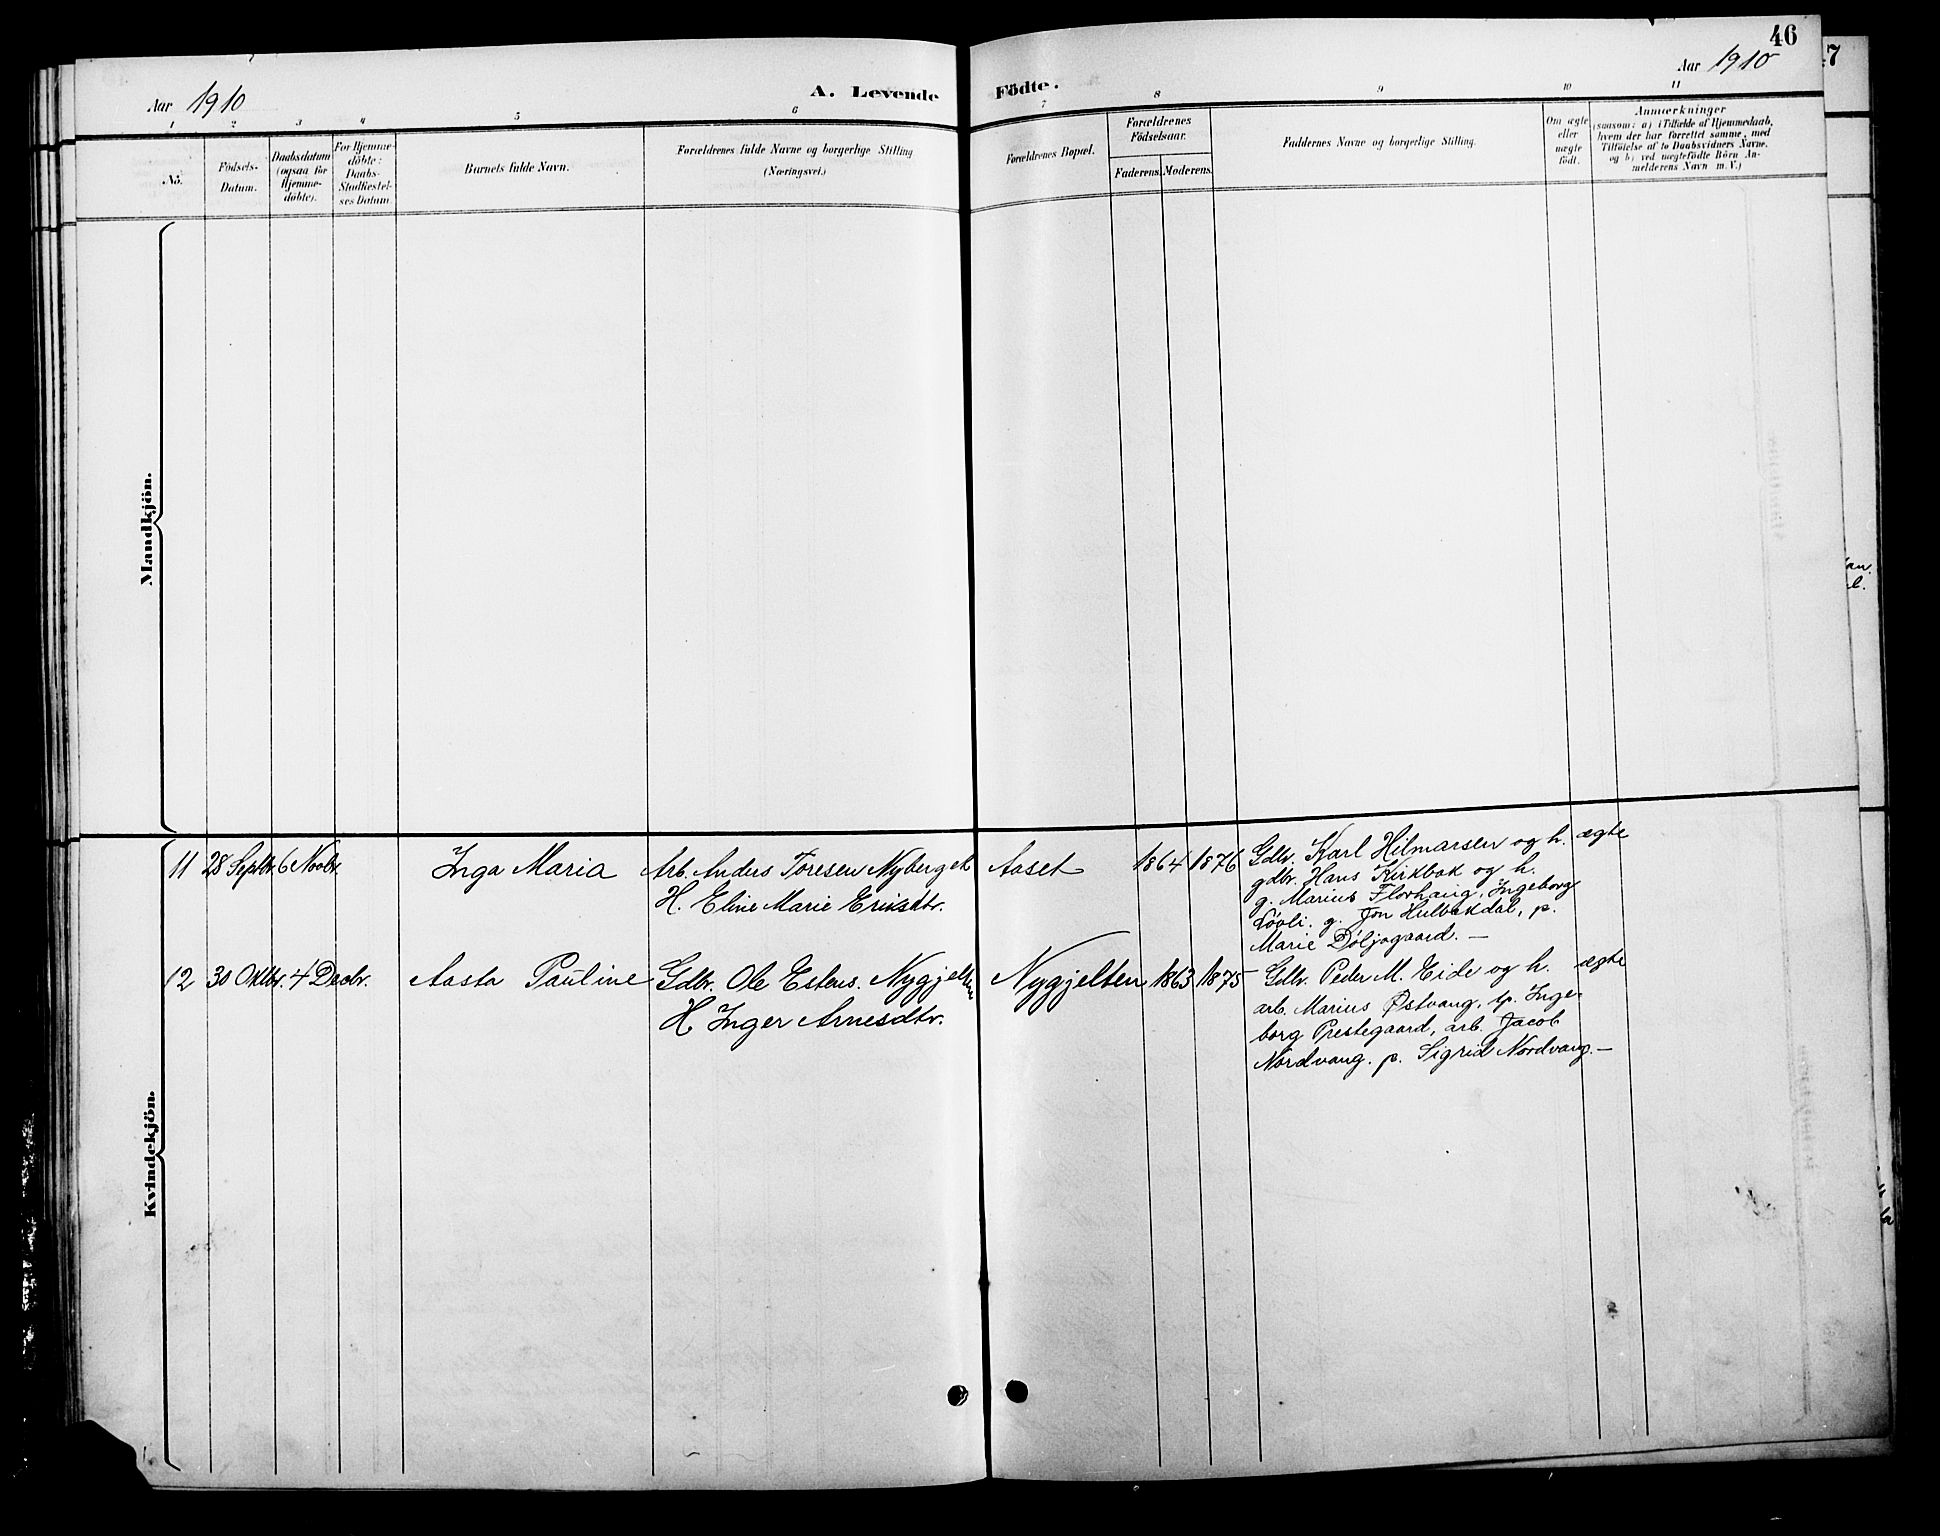 46
Aar 1910
A. Levende Födte.
Aar 1910
7
1 2 3 4 5 6 7 8 9 10 11
No.
Födsels-
Datum.
Daabsdatum
(ogsaa for
Hjemme-
döbte).
For Hjemme-
döbte:
Daabs-
Stadfestel-
ses Datum.
Barnets fulde Navn.
Forældrenes fulde Navne og borgerlige Stilling
(Næringsvei.)
Forældrenes Bopæl.
Forældrenes
Födselsaar.
Faderens. Moderens.
Faddernes Navne og borgerlige Stilling.
Om ægte
eller
uægte
födt.
Anmærkninger
(saasom: a) i Tilfælde af Hjemmedaab,
hvem der har forrettet samme, med
Tilföielse af to Daabsvidners Navne.
og b) ved uægtefödte Börn An-
melderens Navn m. V.)
Mandkjön.
Kvindekjön.
11 28 Septbr. 6 Novbr. Inga Maria Arb. Anders Toresen Nyberget Aaset 1864 1876 Gdbr. Karl Hilmarsen og h. ægte
H. Eline Marie Eriksdtr. gdbr. Hans Kirkbak og h.
g. Marius Florhaug, Ingeborg
Lövli. g. Jon Hulbækdal, p.
Marie Döljogaard. —
12 30 Oktbr. 4 Decbr. Aasta Pauline Gdbr. Ole Estens. Nygjelten Nygjelten 1863 1875 Gdbr. Peder M. Eide og h. ægte
H Inger Arnesdtr. arb. Marius Østvang, tp. Inge-
borg Prestegaard, arb. Jacob
Nordvang. p. Sigrid Nordvang. —